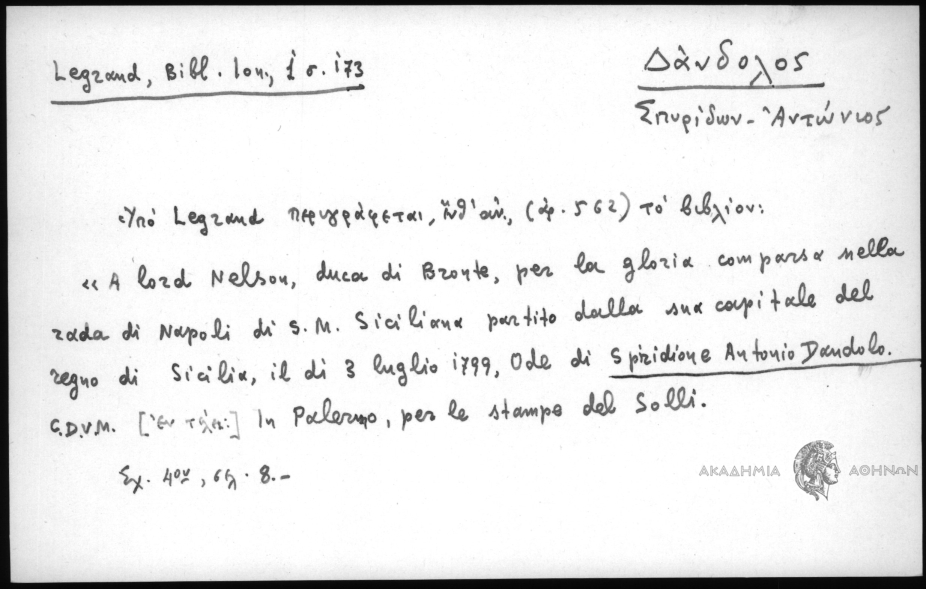 Legrand, Bibl. Ion., 1 σ. 173
Δάνδολος
Σπυρίδων - Ἀντώνιος
Ὑπό Legrand περιγράφεται, ἔνθ' ἀν., (ἀρ. 562) τό βιβλίον:
«A lord Nelson, duca di Bronte, per la gloria comparsa nella
rada di Napoli di S. M. Siciliana partito dalla sua capitale del
regno di Sicilia, il di 3 luglio 1799, Ode di Spiridione Antonio Dandolo.
C.D.V.M. [ἐν τέλει:] In Palermo, per le stampe del Solli.
Σχ. 4ον, σελ. 8.-
ΑΚΑΔΗΜΙΑ ΑΘΗΝΩΝ